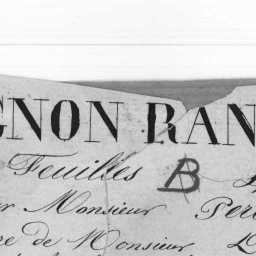 GNON RAN
Feuilles B
Monsieur Per
re de Monsieur